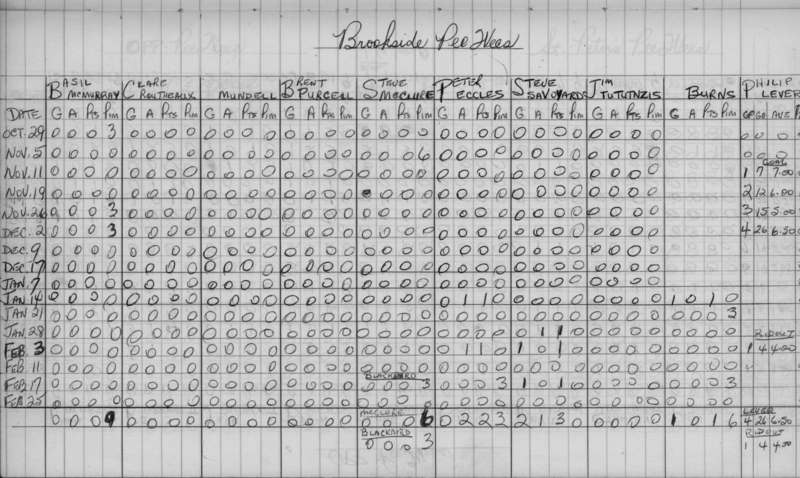 Brookside Pee Wees
BASIL CLARE BRENT STEVE PETER STEVE JIM PHILIP
MCMURRAY ROUTHEAUX MUNDELL PURCELL MCCLURE ECCLES SAVOYARDS TUTUTNZIS BURNS LEVER
DATE G A Pts Pim G A Pts Pim G A Pts Pim G A Pts Pim G A Pts Pim G A Pts Pim G A Pts Pim G A Pts Pim G A Pts Pim GP GA AVE
OCT. 29 0 0 0 3 0 0 0 0 0 0 0 0 0 0 0 0 0 0 0 0 0 0 0 0 0 0 0 0 0 0 0 0 0 0 0
NOV. 5 0 0 0 0 0 0 0 0 0 0 0 0 0 0 0 0 0 0 0 6 0 0 0 0 0 0 0 0 0 0 0 0 0 0 0
GOAL
NOV. 11 0 0 0 0 0 0 0 0 0 0 0 0 0 0 0 0 0 0 0 0 0 0 0 0 0 0 0 0 0 0 0 0 1 7 7.00
NOV. 19 0 0 0 0 0 0 0 0 0 0 0 0 0 0 0 0 0 0 0 0 0 0 0 0 0 0 0 0 0 0 0 0 2 12 6.00
NOV. 26 0 0 0 3 0 0 0 0 0 0 0 0 0 0 0 0 0 0 0 0 0 0 0 0 0 0 0 0 0 0 0 0 3 15 5.00
DEC. 2 0 0 0 3 0 0 0 0 0 0 0 0 0 0 0 0 0 0 0 0 0 0 0 0 0 0 0 0 0 0 0 0 4 26 6.50
DEC. 9 0 0 0 0 0 0 0 0 0 0 0 0 0 0 0 0 0 0 0 0 0 0 0 0 0 0 0 0 0 0 0 0
DEC. 17 0 0 0 0 0 0 0 0 0 0 0 0 0 0 0 0 0 0 0 0 0 0 0 0 0 0 0 0 0 0 0 0
JAN. 7 0 0 0 0 0 0 0 0 0 0 0 0 0 0 0 0 0 0 0 0 0 0 0 0 0 0 0 0 0 0 0 0
JAN 14 0 0 0 0 0 0 0 0 0 0 0 0 0 0 0 0 0 0 0 0 0 1 1 0 0 0 0 0 0 0 0 0 1 0 1 0
JAN 21 0 0 0 0 0 0 0 0 0 0 0 0 0 0 0 0 0 0 0 0 0 0 0 0 0 0 0 0 0 0 0 0 0 0 0 3
JAN. 28 0 0 0 0 0 0 0 0 0 0 0 0 0 0 0 0 0 0 0 0 0 0 0 0 0 1 1 0 0 0 0 0 0 0 0 0 RIDOUT
FEB. 3 0 0 0 0 0 0 0 0 0 0 0 0 0 0 0 0 0 0 0 0 0 1 1 0 1 0 1 0 0 0 0 0 0 0 0 0 1 4 4.00
FEB. 11 0 0 0 0 0 0 0 0 0 0 0 0 0 0 0 0 0 0 0 0 0 0 0 0 0 0 0 0 0 0 0 0 0 0 0 0
BLACKBIRD
FEB. 17 0 0 0 0 0 0 0 0 0 0 0 0 0 0 0 0 0 0 0 3 0 0 0 3 1 0 1 0 0 0 0 0 0 0 0 3
FEB 25 0 0 0 0 0 0 0 0 0 0 0 0 0 0 0 0 0 0 0 0 0 0 0 0 0 0 0 0 0 0 0 0 0 0 0 0
MCCLURE LEVER
0 0 0 9 0 0 0 0 0 0 0 0 0 0 0 0 0 0 0 6 0 2 2 3 2 1 3 0 0 0 0 0 1 0 1 6 4 26 6.50
BLACKBIRD RIDOUT
0 0 0 3 1 4 4.00